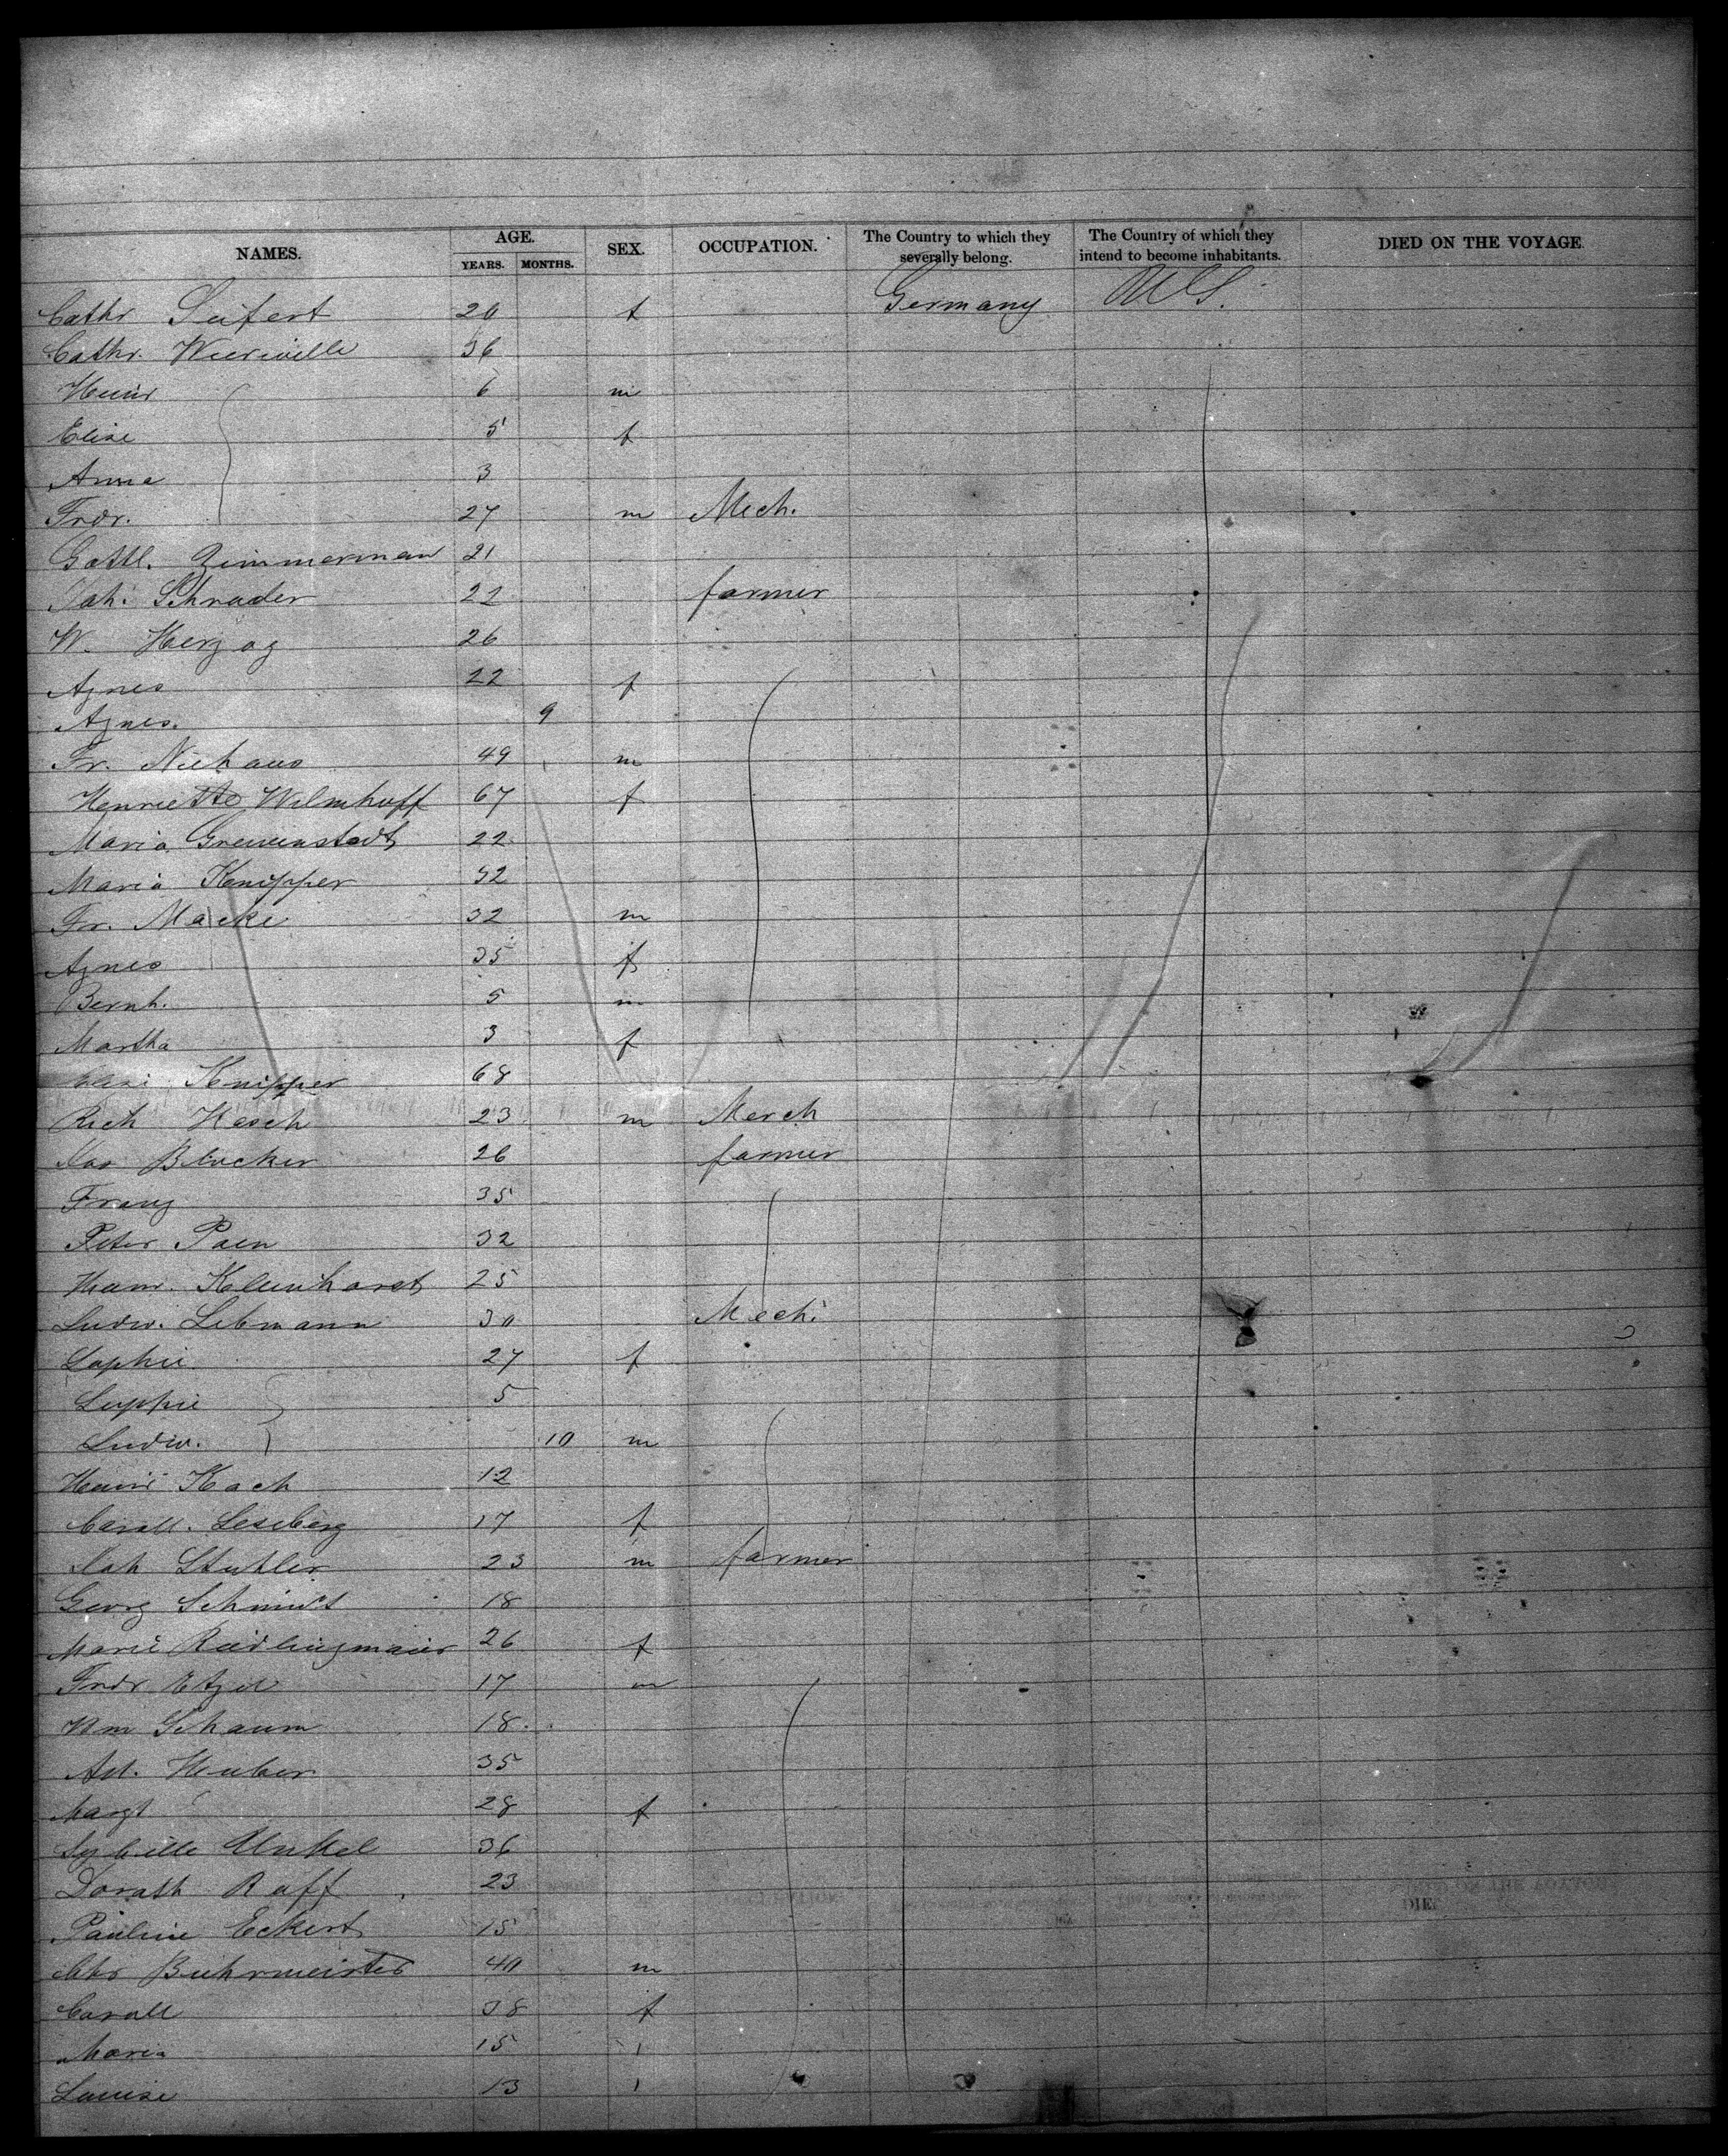 NAMES. AGE. YEARS. MONTHS. SEX. OCCUPATION. The Country to which they severally belong. The Country of which they intend to become inhabitants. DIED ON THE VOYAGE.
Cathr Seifert 20 f Germany U.S.
Cathr. 36
Heinr 6 m
Elise 5 f
Anna 3
Fredr. 27 m Mech.
Gottl. Zimmerman 21
Joh. Schrader 22 farmer
W. Herzog 26
Agnes 22 f
Agnes. 9
Fr. Niehaus 49 m
Henriette Wilmhoff 67 f
Maria 22
Maria Knipper 32
Fr. Macke 32 m
Agnes 35 f
Bernh. 5 m
Martha 3 f
Knipper 68
Rich Hasch 23 m Merch
Jos Blocker 26 farmer
Franz 35
Peter Paen 32
Kleinhorst 25
Ludw. Lebmann 30 Mech.
Sophie 27 f
Sophie 5
Ludw. 10 m
Heinr Koch 12
Caroll. Leseberg 17 f
Joh Stuhler 23 m farmer
Georg Schmidt 18
Marie Riedlingmaier 26 f
Fredr Etzel 17 m
Wm Schaum 18.
Ad. Huber 35
Margt 28 f
Sybille Unkel 36
Dorath Raff 23
Pauline Eckert 15
Chr Buhrmeister 40 m
Caroll 38 f
Maria 15 "
Louise 13 "